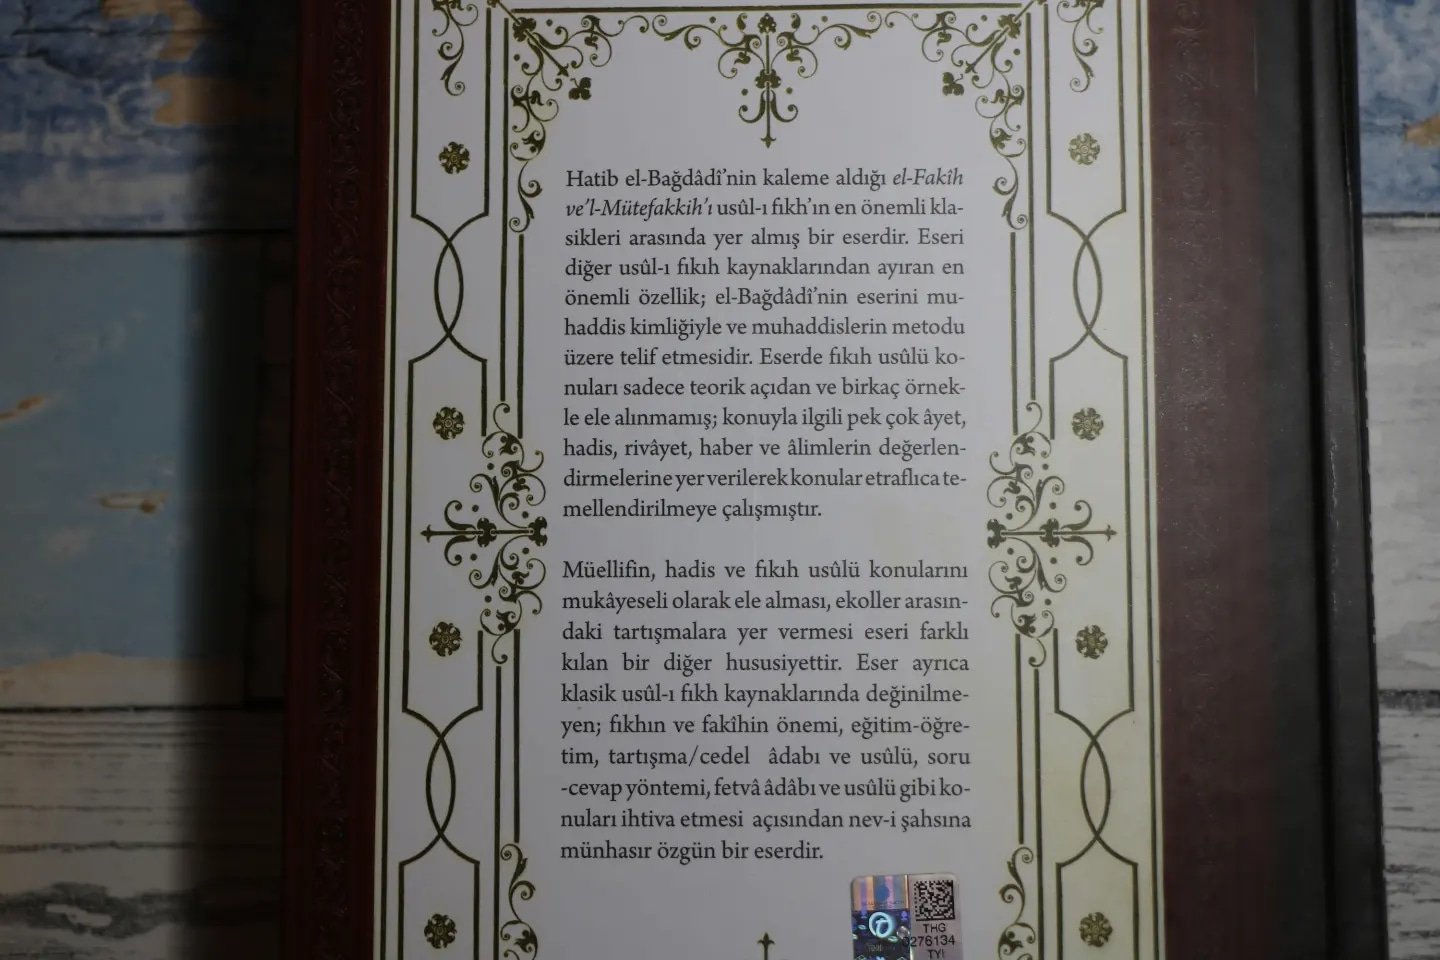 Hatib el-Bağdâdî’nin kaleme aldığı el-Fakîh
ve’l-Mütefakkih’ı usûl-ı fıkh’ın en önemli kla-
sikleri arasında yer almış bir eserdir. Eseri
diğer usûl-ı fıkıh kaynaklarından ayıran en
önemli özellik; el-Bağdâdî’nin eserini mu-
haddis kimliğiyle ve muhaddislerin metodu
üzere telif etmesidir. Eserde fıkıh usûlü ko-
nuları sadece teorik açıdan ve birkaç örnek-
le ele alınmamış; konuyla ilgili pek çok âyet,
hadis, rivâyet, haber ve âlimlerin değerlen-
dirmelerine yer verilerek konular etraflıca te-
mellendirilmeye çalışmıştır.
Müellifin, hadis ve fıkıh usûlü konularını
mukâyeseli olarak ele alması, ekoller arasın-
daki tartışmalara yer vermesi eseri farklı
kılan bir diğer hususiyettir. Eser ayrıca
klasik usûl-ı fıkh kaynaklarında değinilme-
yen; fıkhın ve fakîhin önemi, eğitim-öğre-
tim, tartışma/cedel âdabı ve usûlü, soru
-cevap yöntemi, fetvâ âdâbı ve usûlü gibi ko-
nuları ihtiva etmesi açısından nev-i şahsına
münhasır özgün bir eserdir.
THG
0276134
TYI